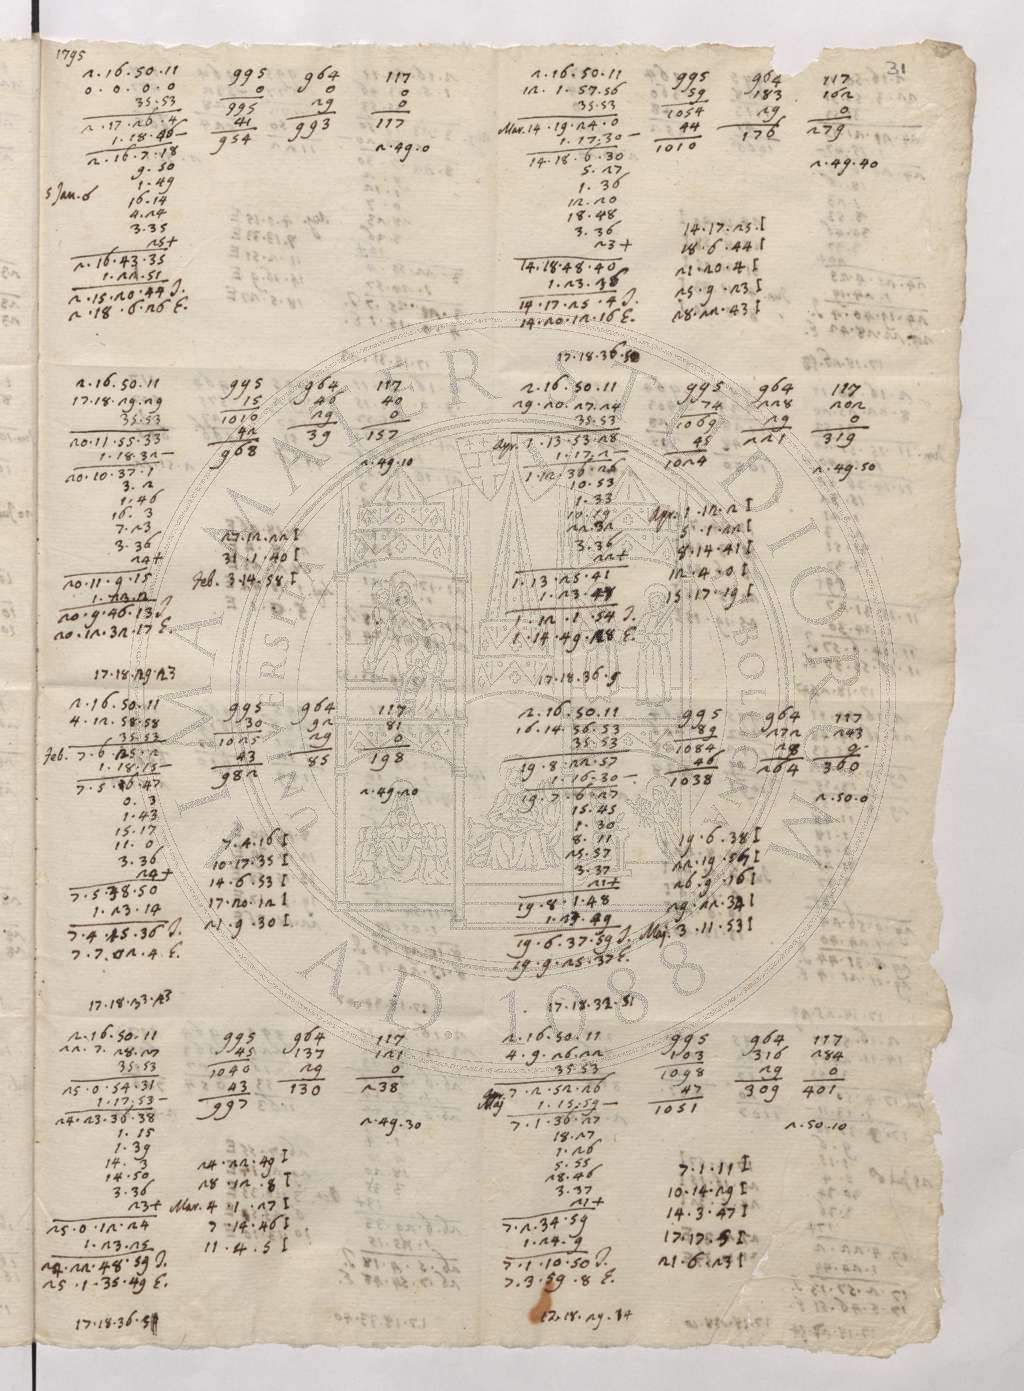 1795
2.16.50.11 995 964 117
0.0.0.0 0 0 0
35.53 995 29 0
2.17.26.4 41 993 117
1.18.46– 954
2.16.7.18 2.49.0
9.50
1.49
5 Jan. 6 16.14
4.24
3.35
25+
2.16.43.35
1.22.51
2.15.20.44 J.
2.18.6.26 E.
2.16.50.11 995 964 117
17.18.29.29 15 46 40
35.53 1010 29 0
20.11.55.33 42 39 157
1.18.32– 968
20.10.37.1 2.49.10
3.2
1.46
16.3
7.23 27.12.22 I
3.36 31.1.40 I
24+ Feb. 3.14.58 I
20.11.9.15
1.23.2
20.9.46.13 J.
20.12.32.17 E.
17.18.29.23
2.16.50.11 995 964 117
4.12.58.58 30 92 81
35.53 1025 29 0
Feb. 7.6.25.2 43 85 198
1.18.15– 982
7.5.6.47 2.49.20
0.3
1.43
15.17
11.0 7.4.16 I
3.36 10.17.35 I
24+ 14.6.53 I
7.5.38.50 17.20.12 I
1.23.14 21.9.30 I
7.4.15.36 J.
7.7.2.4 E.
17.18.33.23
2.16.50.11 995 964 117
22.7.28.27 45 137 121
35.53 1040 29 0
25.0.54.31 43 130 238
1.17.53– 997
24.23.36.38 2.49.30
1.15
1.39
14.3 24.22.49 I
14.50 28.12.8 I
3.36
23+ Mar. 4.1.27 I
25.0.12.24 7.14.46 I
1.23.25 11.4.5 I
24.22.48.59 J.
25.1.35.49 E.
17.18.36.51
31
2.16.50.11 995 964 117
12.1.57.56 59 183 162
35.53 1054 29 0
Mar. 14.19.24.0 44 176 279
1.17.30– 1010
14.18.6.30 2.49.40
5.27
1.36
12.20
18.48
3.36 14.17.25 I
23+ 18.6.44 I
14.18.48.40 21.20.4 I
1.23.36 25.9.23 I
14.17.25.4 J. 28.22.43 I
14.20.12.16 E.
17.18.36.50
2.16.50.11 995 964 117
29.20.27.24 74 228 202
35.53 1069 29 0
Apr. 1.13.53.28 45 221 319
1.17.2– 1024
1.12.36.26 2.49.50
10.53
1.33
10.19 Apr. 1.12.2 I
22.32 5.1.22 I
3.36 8.14.41 I
22+ 12.4.0 I
1.13.25.41 15.17.19 I
1.23.48
1.12.1.54 J.
1.14.49.28 E.
17.18.36.9
2.16.50.11 995 964 117
16.14.56.53 89 272 243
35.53 1084 28 0
19.8.22.57 46 264 360
1.16.30– 1038
19.7.6.27 2.50.0
15.45
1.30
8.11 19.6.38 I
25.57 22.19.56 I
3.37 26.9.16 I
21+ 29.22.34 I
19.8.1.48 May. 3.11.53 I
1.23.49
19.6.37.59 J.
19.9.25.37 E.
17.18.32.51
2.16.50.11 995 964 117
4.9.26.22 103 316 284
35.53 1098 29 0
May 7.2.52.26 47 309 401
1.15.59– 1051
7.1.36.27 2.50.10
18.27
1.26
5.55
28.46 7.1.11 I
3.37 10.14.29 I
21+ 14.3.47 I
7.2.34.59 17.17.5 I
1.24.9 21.6.23 I
7.1.10.50 J.
7.3.59.8 E.
12.18.29.34